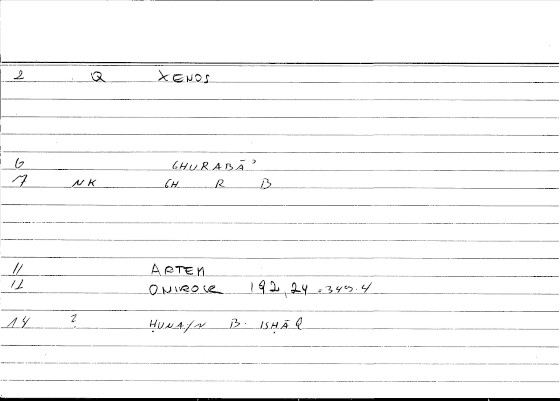 2 Q XENOS
6 GHURABĀʾ
7 NK GH R B
11 ARTEM
12 ONIROCR 192,24 = 349.4
14 ? ḤUNAYN B. ISḤĀQ